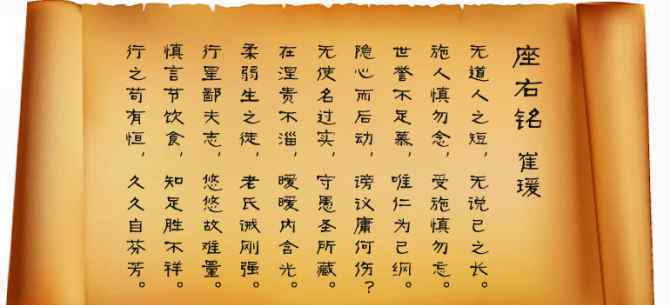 座右铭 崔瑗
无道人之短，无说己之长。
施人慎勿念，受施慎勿忘。
世誉不足慕，唯仁为己纲。
隐心而后动，谤议庸何伤？
无使名过实，守愚圣所藏。
在涅贵不淄，暧暧内含光。
柔弱生之徒，老氏诫刚强。
行星鄙夫志，悠悠故难量。
慎言节饮食，知足胜不祥。
行之苟有恒，久久自芬芳。